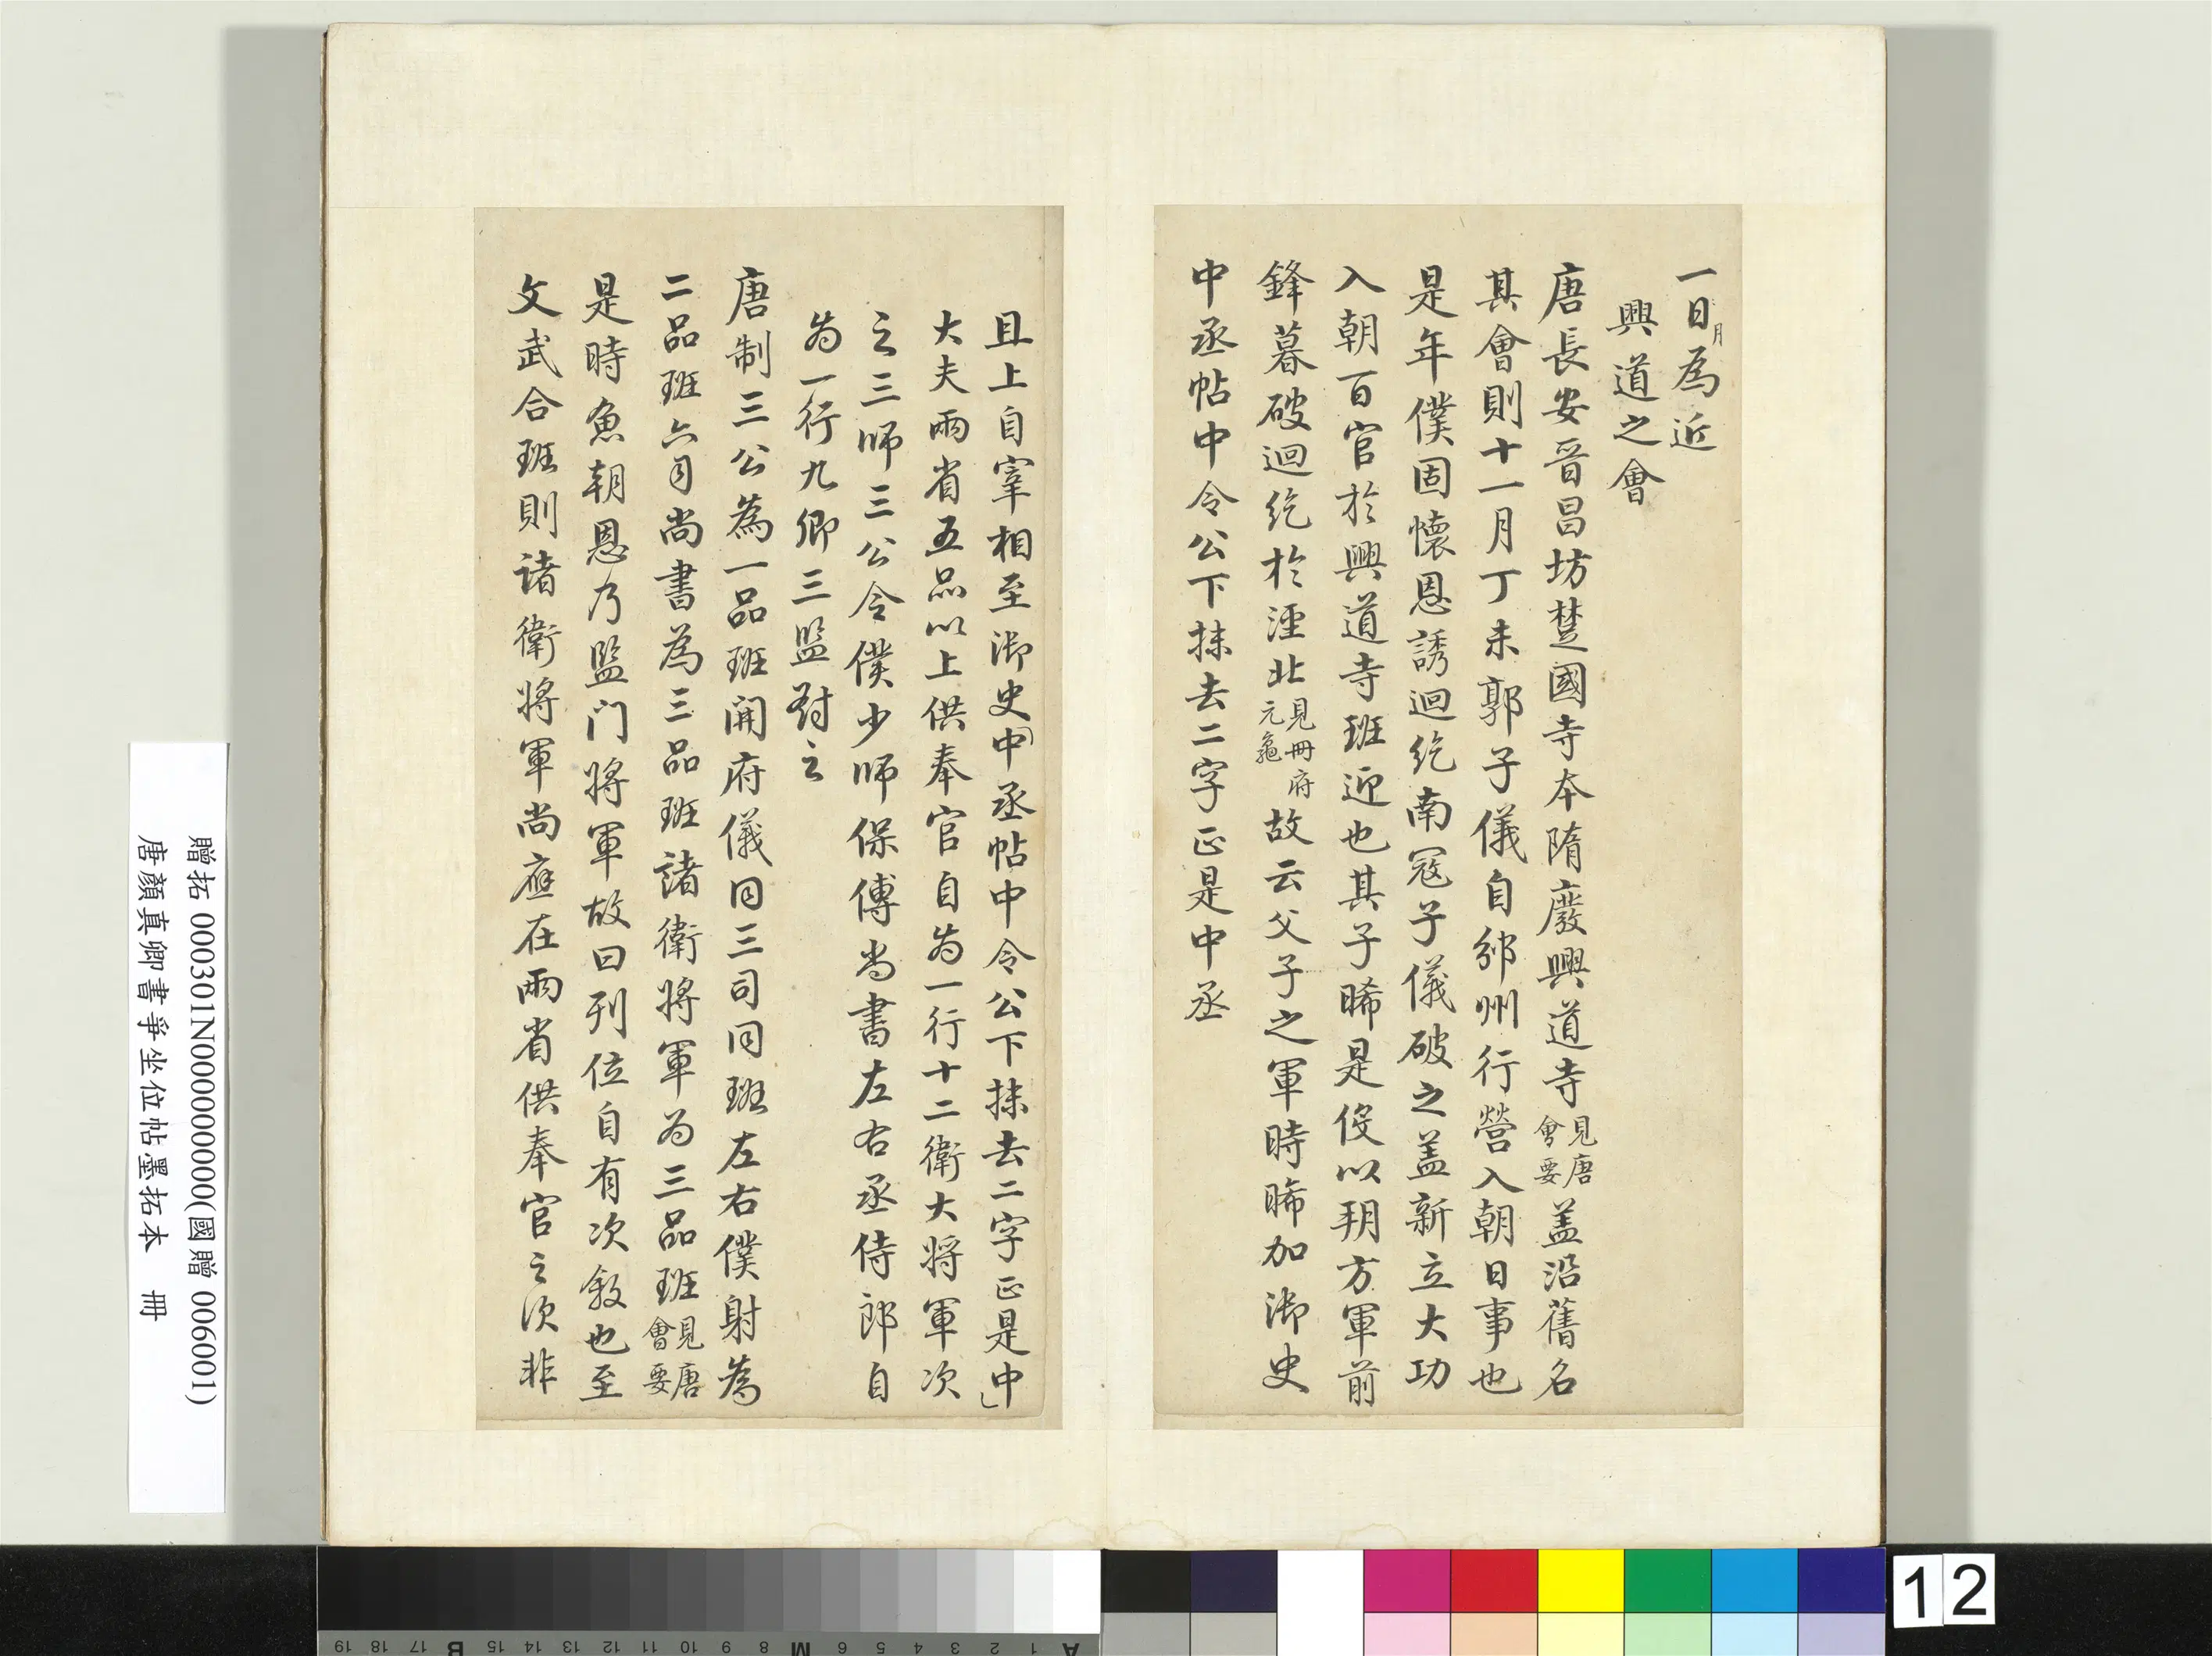 一日月為近
興道之會
唐長安晉昌坊楚國寺本隋廢興道寺見唐會要蓋沿舊名
其會則十一月丁未郭子儀自邠州行營入朝日事也
是年僕固懷恩誘迴紇南寇子儀破之蓋新立大功
入朝百官於興道寺班迎也其子晞是役以朔方軍前
鋒暮破迴紇於涇北見冊府元龜故云父子之軍時晞加御史
中丞帖中令公下抹去二字正是中丞
且上自宰相至御史中丞帖中令公下抹去二字正是中
大夫兩省五品以上供奉官自为一行十二衛大將軍次
之三師三公令僕少師保傅尚書左右丞侍郎自
为一行九卿三監對之
唐制三公為一品班開府儀同三司同班左右僕射為
二品班六司尚書為三品班諸衛將軍为三品班見唐會要
是時魚朝恩乃監门將軍故曰列位自有次敘也至
文武合班則諸衛將軍尚應在兩省供奉官之次非
贈拓 000301N000000000(國贈 006001)
唐顏真卿書爭坐位帖墨拓本 冊
12
A 1 2 3 4 5 6 M 8 9 10 11 12 13 14 15 B 17 18 19